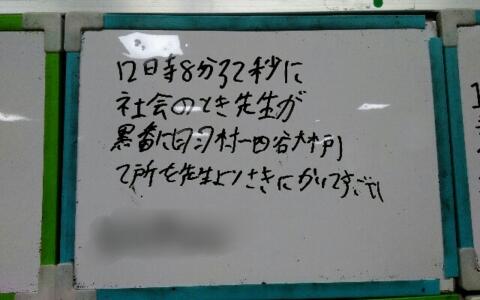 12日時8分32秒に
社会のとき先生が
黒番に日月村一四谷大木戸
て所を先生よりさきにかいてすごい